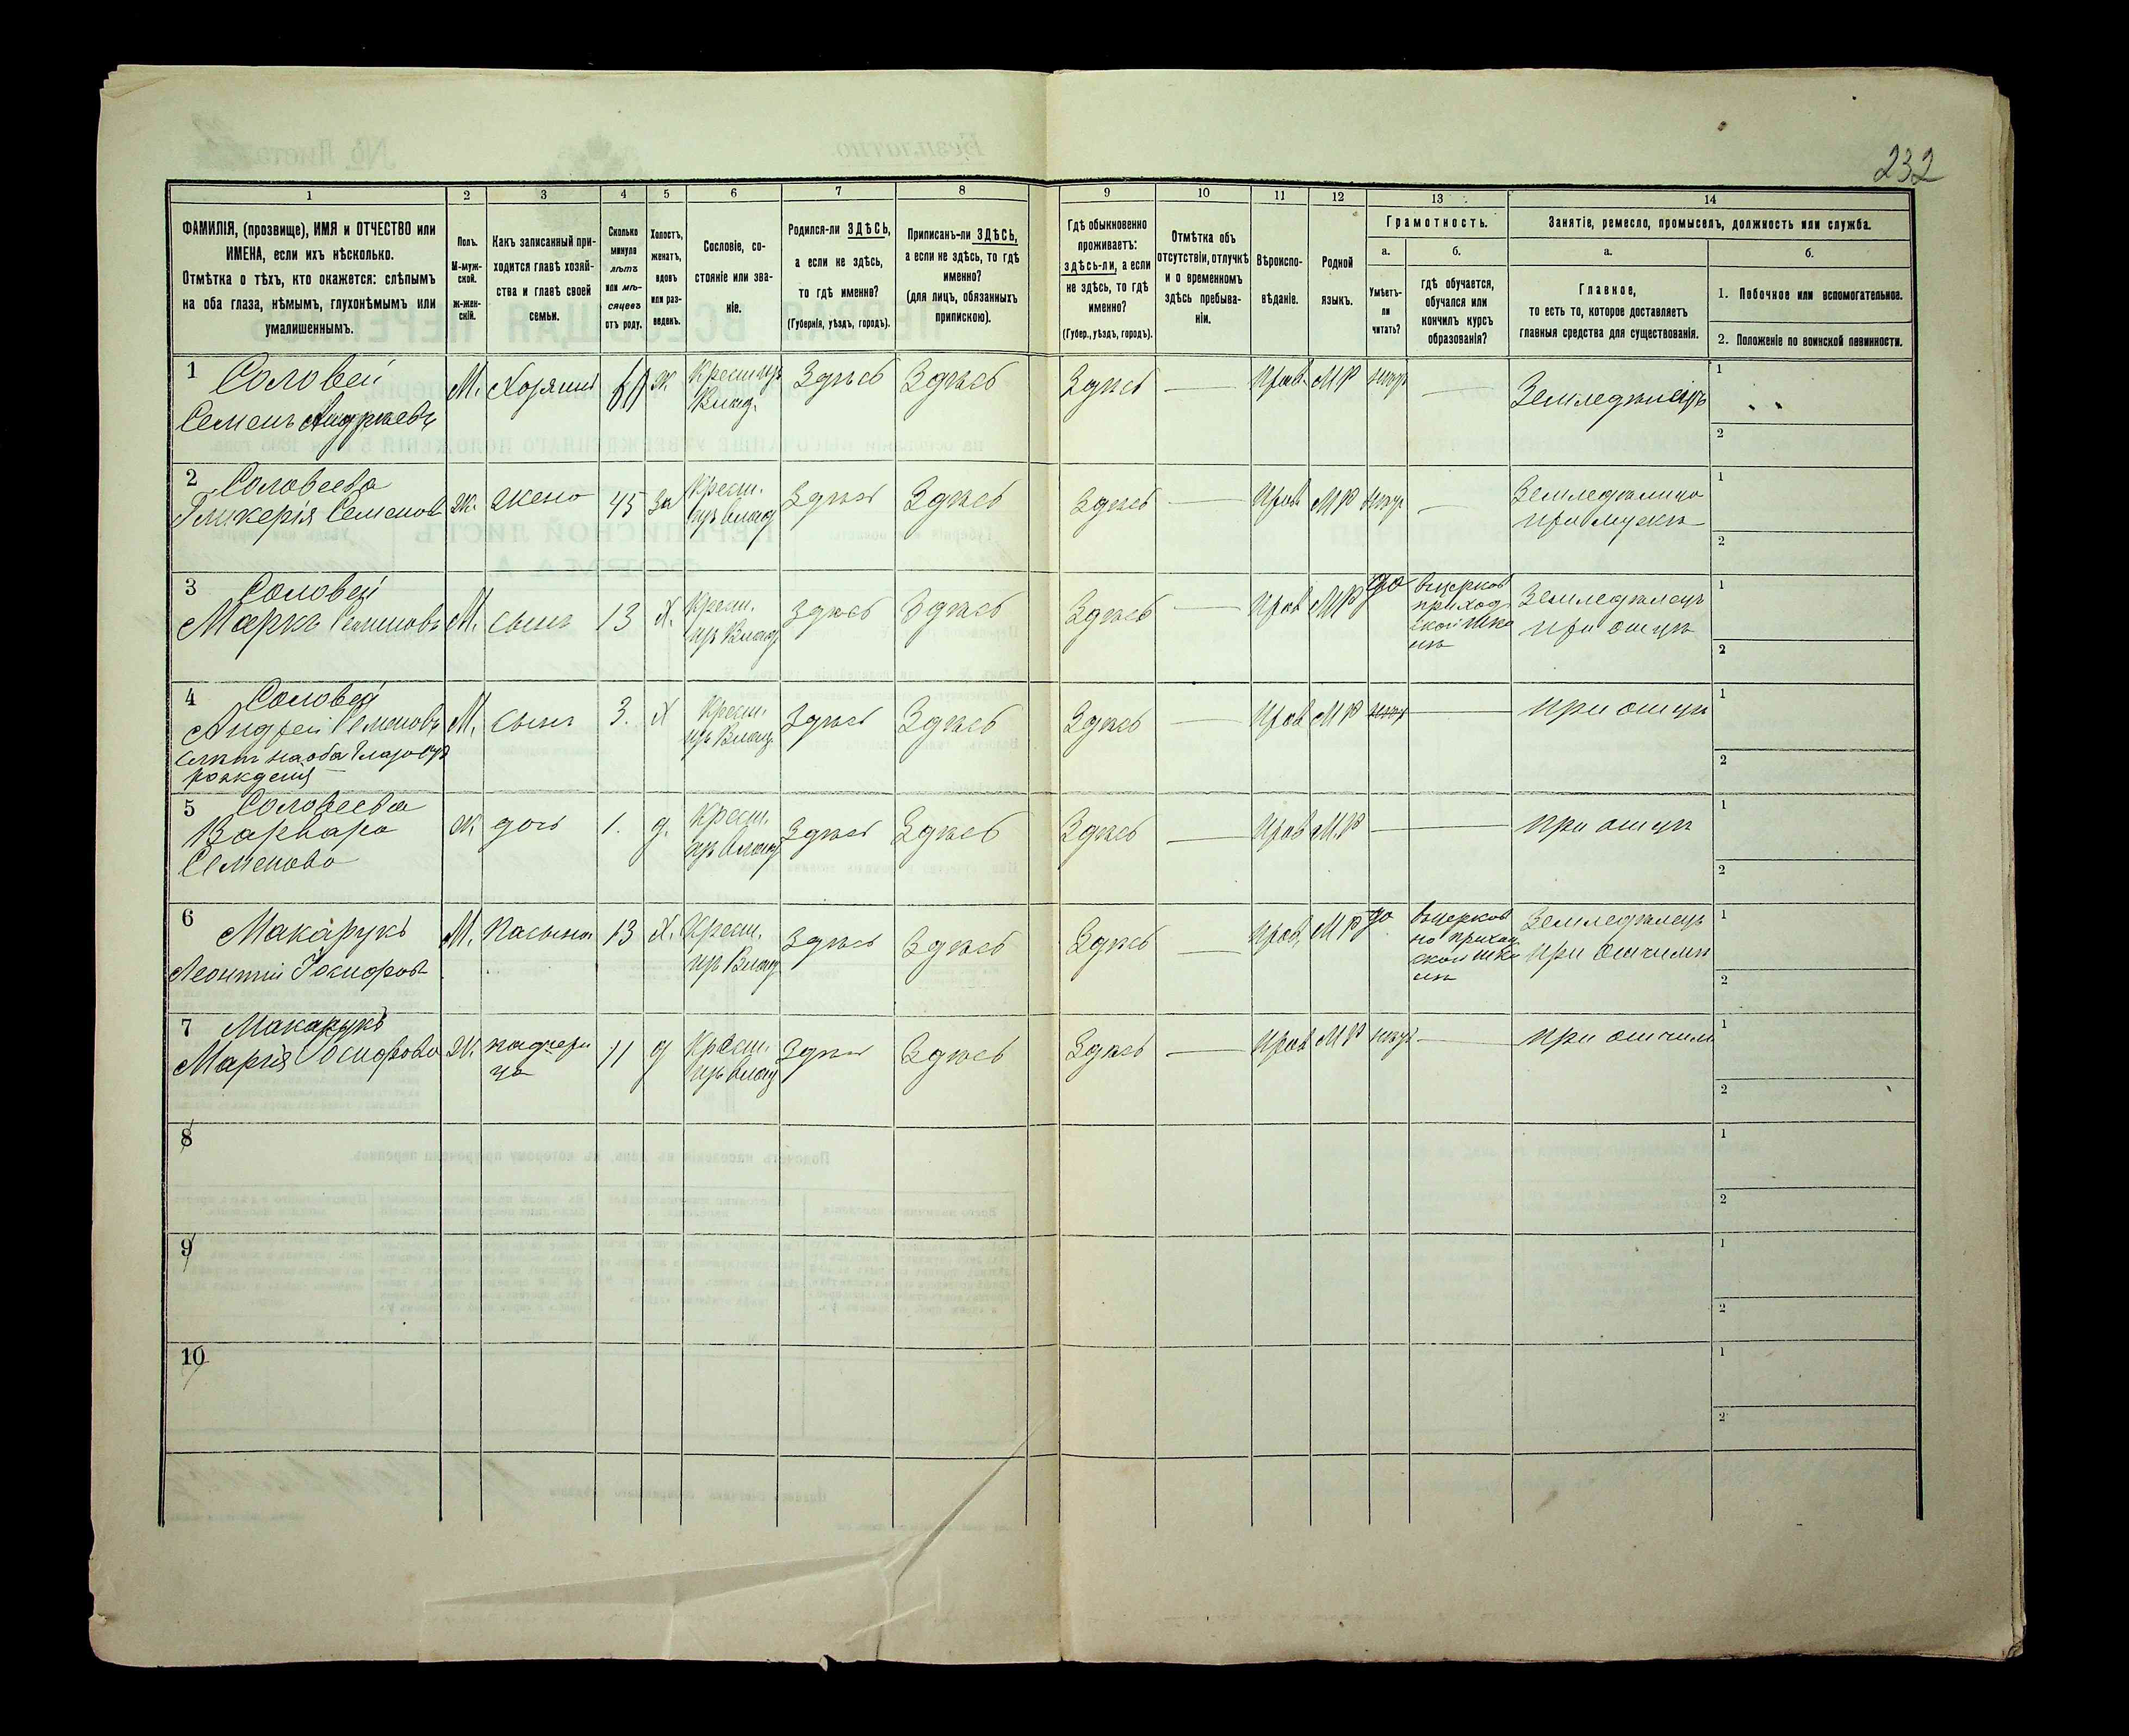 232
1
2
3
4
5
6
7
8
9
10
11
12
13
14
ФАМИЛІЯ, (прозвище), ИМЯ и ОТЧЕСТВО или
ИМЕНА, если ихъ нѣсколько.
Отмѣтка о тѣхъ, кто окажется: слѣпымъ
на оба глаза, нѣмымъ, глухонѣмымъ или
умалишеннымъ.
Полъ.
М-муж-
ской.
Ж-жен-
скій.
Какъ записанный при-
ходится главѣ хозяй-
ства и главѣ своей
семьи.
Сколько
минуло
лѣтъ
или мѣ-
сяцевъ
отъ роду.
Холостъ,
женатъ,
вдовъ
или раз-
веденъ.
Сословіе, со-
стояніе или зва-
ніе.
Родился-ли ЗДѢСЬ,
а если не здѣсь,
то гдѣ именно?
(Губернія, уѣздъ, городъ).
Приписанъ-ли ЗДѢСЬ,
а если не здѣсь, то гдѣ
именно?
(для лицъ, обязанныхъ
припискою).
Гдѣ обыкновенно
проживаетъ:
здѣсь-ли, а если
не здѣсь, то гдѣ
именно?
(Губер., уѣздъ, городъ).
Отмѣтка объ
отсутствіи, отлучкѣ
и о временномъ
здѣсь пребыва-
ніи.
Вѣроиспо-
вѣданіе.
Родной
языкъ.
Грамотность.
а.
Умѣетъ-
ли
читать?
б.
гдѣ обучается,
обучался или
кончилъ курсъ
образованія?
Занятіе, ремесло, промыселъ, должность или служба.
а.
Главное,
то есть то, которое доставляетъ
главныя средства для существованія.
б.
1. Побочное или вспомогательное.
2. Положеніе по воинской повинности.
1 Соловей
Семенъ Андреевъ
М.
Хозяинъ
60
ж
Крест. изъ
Влад.
Здѣсь
Здѣсь
Здѣсь
—
Прав.
МР
нѣтъ
—
Земледѣлецъ
1
2
2 Соловеева
Гликерія Семенов
Ж.
жена
45
За
Крест.
изъ Влад
Здѣсь
Здѣсь
Здѣсь
—
Прав
МР
нѣтъ
—
Земледѣлица
при мужѣ
1
2
3 Соловей
Маркъ Семеновъ
М.
сынъ
13
Х.
Крест.
изъ Влад
Здѣсь
Здѣсь
Здѣсь
—
Прав
МР
да
въ церков
приход
ской шко
лѣ
Земледѣлецъ
при отцѣ
1
2
4 Соловей
Андрей Семеновъ
слѣпъ на оба глаза отъ
рожденія
М.
сынъ
3.
Х
Крест.
изъ Влад.
Здѣсь
Здѣсь
Здѣсь
—
Прав
МР
нѣтъ
—
при отцѣ
1
2
5 Соловеева
Варвара
Семенова
Ж.
дочь
1.
д.
Крест.
изъ Влад
Здѣсь
Здѣсь
Здѣсь
—
Прав
МР
—
при отцѣ
1
2
6 Макарукъ
Леонтій Іосифов
М.
Пасынок
13
Х.
Крест.
изъ Влад
Здѣсь
Здѣсь
Здѣсь
—
Прав.
МР
да
въ церков
но приход
ской шко
лѣ
Земледѣлецъ
при отчимѣ
1
2
7 Макарукъ
Марія Іосифова
Ж.
падчери
ца
11
д
Крест.
изъ Влад
Здѣсь
Здѣсь
Здѣсь
—
Прав
МР
нѣтъ
—
при отчим
1
2
8
1
2
9
1
2
10
1
2